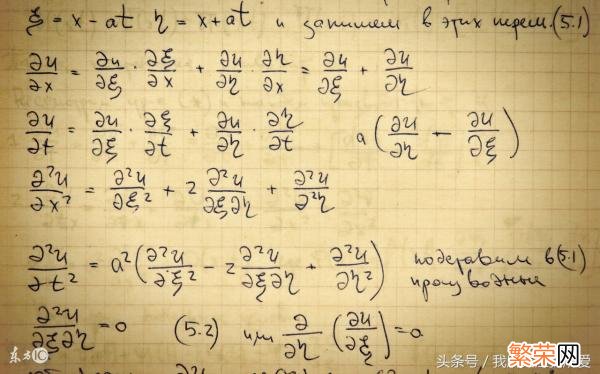 ξ = x - at η = x + at и запишем в этих перем. (5.1)
∂u/∂x = ∂u/∂ξ · ∂ξ/∂x + ∂u/∂η · ∂η/∂x = ∂u/∂ξ + ∂u/∂η
∂u/∂t = ∂u/∂ξ · ∂ξ/∂t + ∂u/∂η · ∂η/∂t a(∂u/∂η - ∂u/∂ξ)
∂²u/∂x² = ∂²u/∂ξ² + 2 ∂²u/∂ξ∂η + ∂²u/∂²η
∂²u/∂t² = a²(∂²u/∂ξ² - 2 ∂²u/∂ξ∂η + ∂²u/∂η²) подставим в (5.1)
производные
∂²u/∂ξ∂η = 0 (5.2) или ∂/∂η (∂u/∂ξ) = 0
东方IC
头条号 / 我
爱
繁荣网